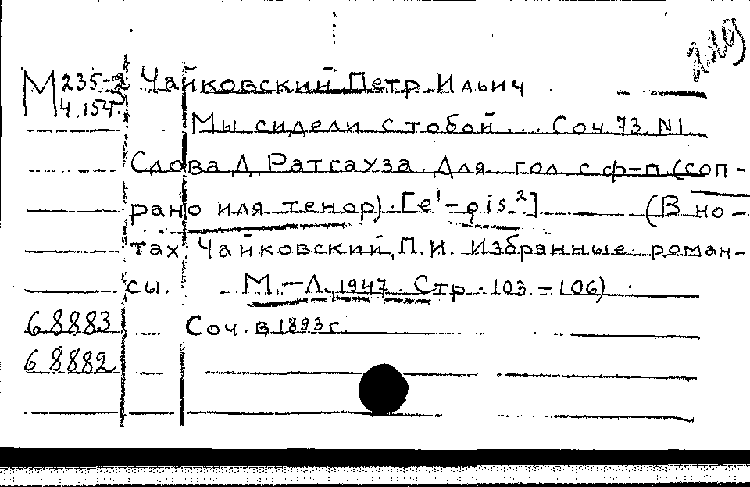 М 235-2 Чайковский Петр Ильич
4.154
Мы сидели с тобой... Соч. 73. N1
Слова Д. Ратгауза. Для гол. с ф-п (соп-
рано или тенор). [e¹-gis²] (В но-
тах: Чайковский, П.И. Избранные роман-
сы. М.-Л. 1947. Стр. 103-106)
68883 Соч. в 1893 г.
68882